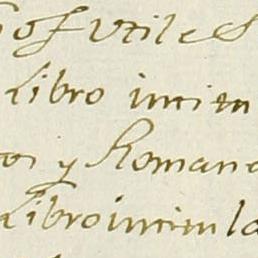 os Utiles
Libro intitu
os y Romanc
Libro intitula